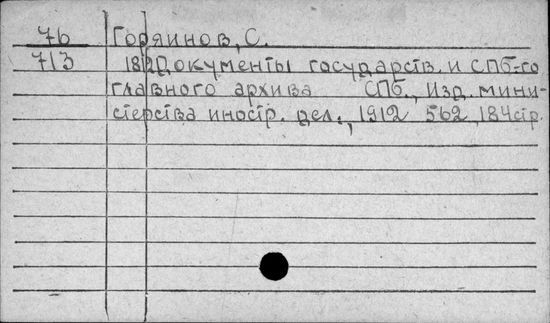 76 Горяинов, С.
713 1812 Документы государств. и СПБ-го
главного архива СПБ., Изд. мини-
стерства иностр. дел., 1912 562, 184 стр.